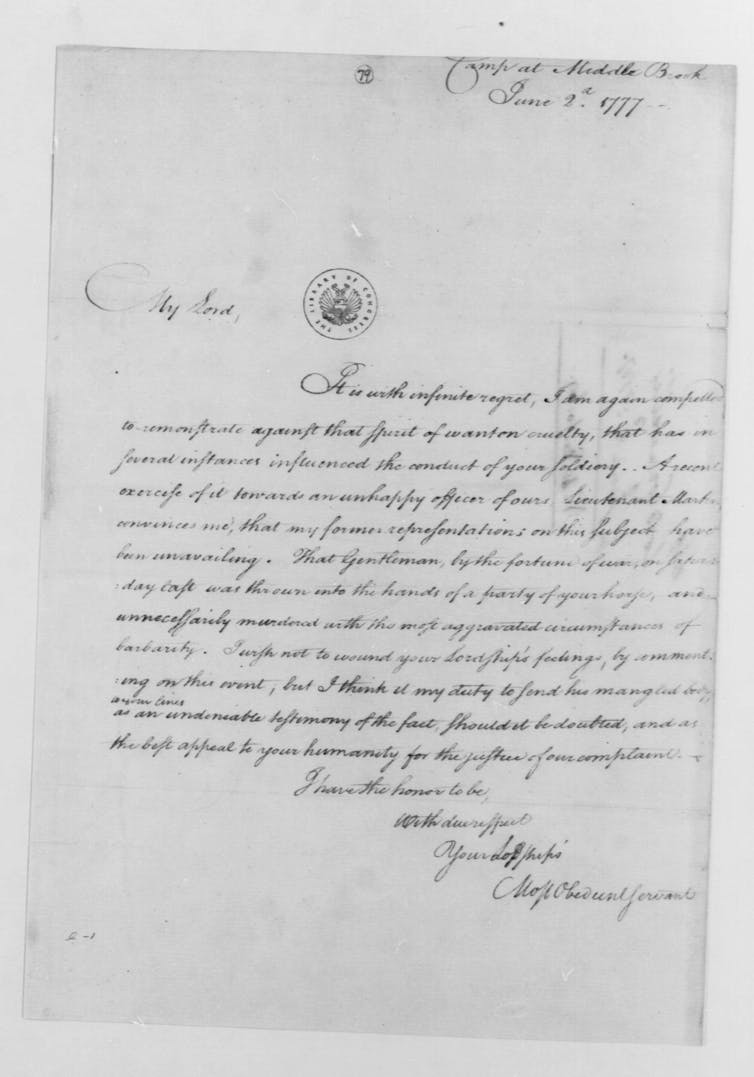 79
Camp at Middle Brook
June 2d. 1777--
THE LIBRARY OF CONGRESS
My Lord,
It is with infinite regret, I am again compelled
to remonstrate against that spirit of wanton cruelty, that has in
several instances influenced the conduct of your soldiery.. A recent
exercise of it towards an unhappy officer of ours Lieutenant Martin,
convinces me, that my former representations on this subject have
been unavailing. That Gentleman, by the fortune of war, on satur=
:day last was thrown into the hands of a party of your horse, and
unnecessarily murdered with the most aggravated circumstances of
barbarity. I wish not to wound your Lordship's feelings, by comment:
:ing on this event, but I think it my duty to send his mangled body,
to your lines
as an undeniable testimony of the fact, should it be doubted, and as
the best appeal to your humanity for the justice of our complaint.
I have the honor to be,
With due respect
Your Lordship's
Most Obedient Servant